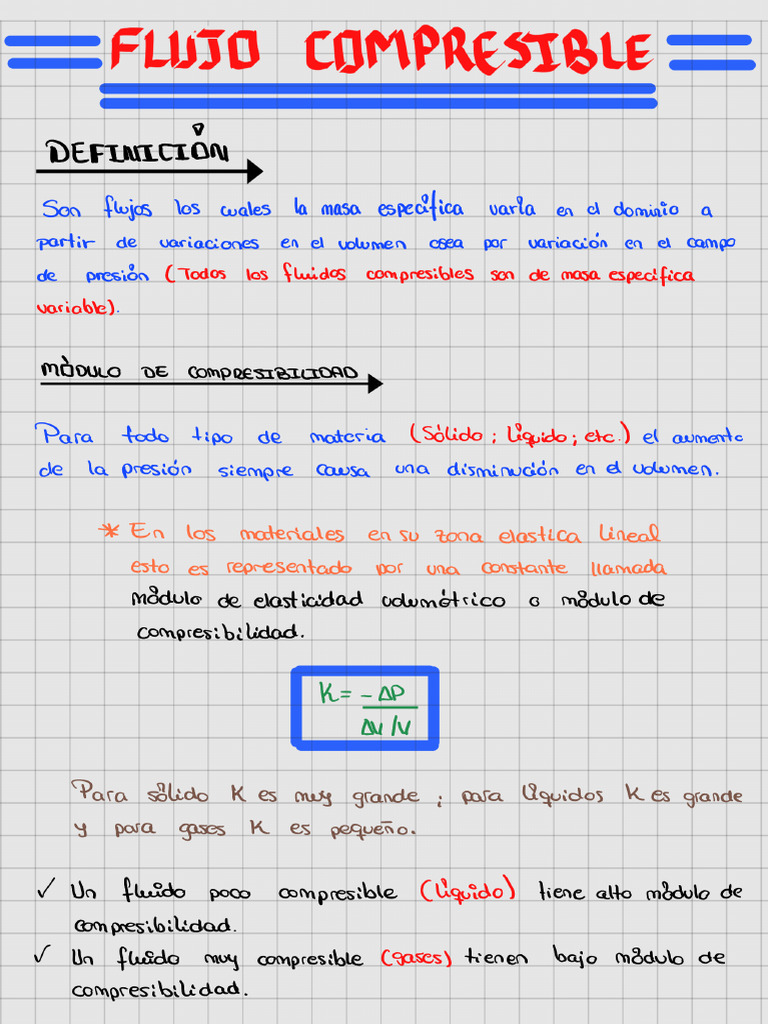 FLUJO COMPRESIBLE
DEFINICIÓN
Son flujos los cuales la masa específica varía en el dominio a
partir de variaciones en el volumen osea por variación en el campo
de presión (Todos los fluidos compresibles son de masa específica
variable).
MÓDULO DE COMPRESIBILIDAD
Para todo tipo de materia (Sólido; líquido; etc.) el aumento
de la presión siempre causa una disminución en el volumen.
* En los materiales en su zona elastica lineal
esto es representado por una constante llamada
módulo de elasticidad volumétrico o módulo de
compresibilidad.
K = -ΔP
ΔV/V
Para sólido K es muy grande; para líquidos K es grande
y para gases K es pequeño.
✓ Un fluido poco compresible (líquido) tiene alto módulo de
compresibilidad.
✓ Un fluido muy compresible (gases) tienen bajo módulo de
compresibilidad.